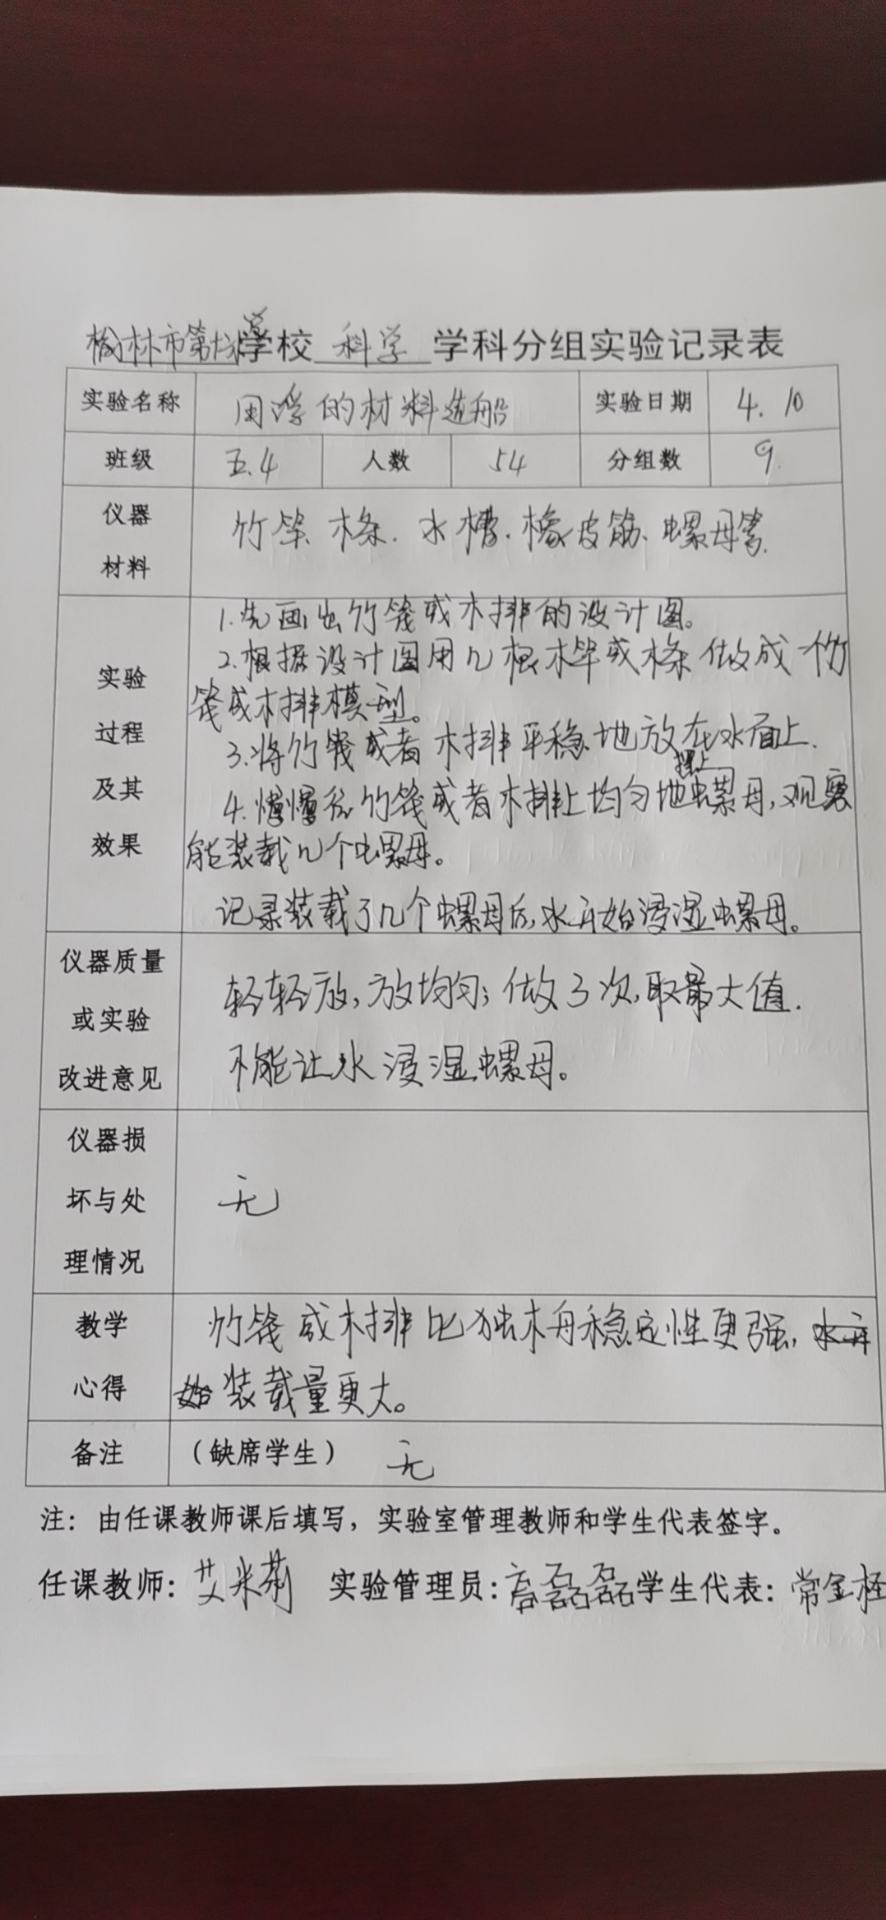 榆林市第十小学学校 科学 学科分组实验记录表
实验名称 用浮的材料造船 实验日期 4.10
班级 五.4 人数 54 分组数 9
仪器材料 竹竿、木条、水槽、橡皮筋、螺母等
实验过程及其效果
1.先画出竹筏或木排的设计图。
2.根据设计图用几根木竿或木条做成竹
筏或木排模型。
3.将竹筏或者木排平稳地放在水面上.
4.慢慢在竹筏或者木排上均匀地摆上螺母,观察
能装载几个螺母。
记录装载了几个螺母后,水开始浸湿螺母。
仪器质量或实验改进意见
轻轻放,放均匀;做3次,取最大值.
不能让水浸湿螺母。
仪器损坏与处理情况 无
教学心得
竹筏或木排比独木舟稳定性更强,
装载量更大。
备注 (缺席学生) 无
注:由任课教师课后填写,实验室管理教师和学生代表签字。
任课教师:艾米莉 实验管理员:高磊磊 学生代表:常金